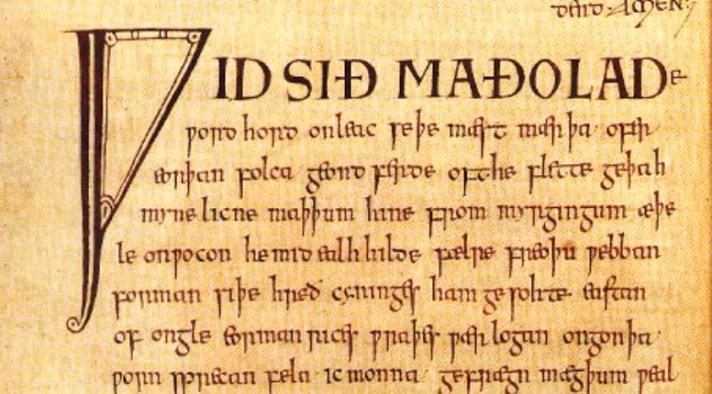 AMEN:7
ǷID SIÐ MAÐOLADe
ƿord hord onleac se þe mæst mærþa ofer
eorþan folca geond ferde oft he flette geþah
myne licne maþþum hine from myrgingum æþe
le onƿocon he mid ealh hilde fælre freoþu ƿebban
forman siþe hreð cyninges ham gesohte eastan
of ongle eorman rices ƿraþes ƿær logan ongon þa
ƿorn sprecan fela ic monna gefrægn mægþum ƿeal